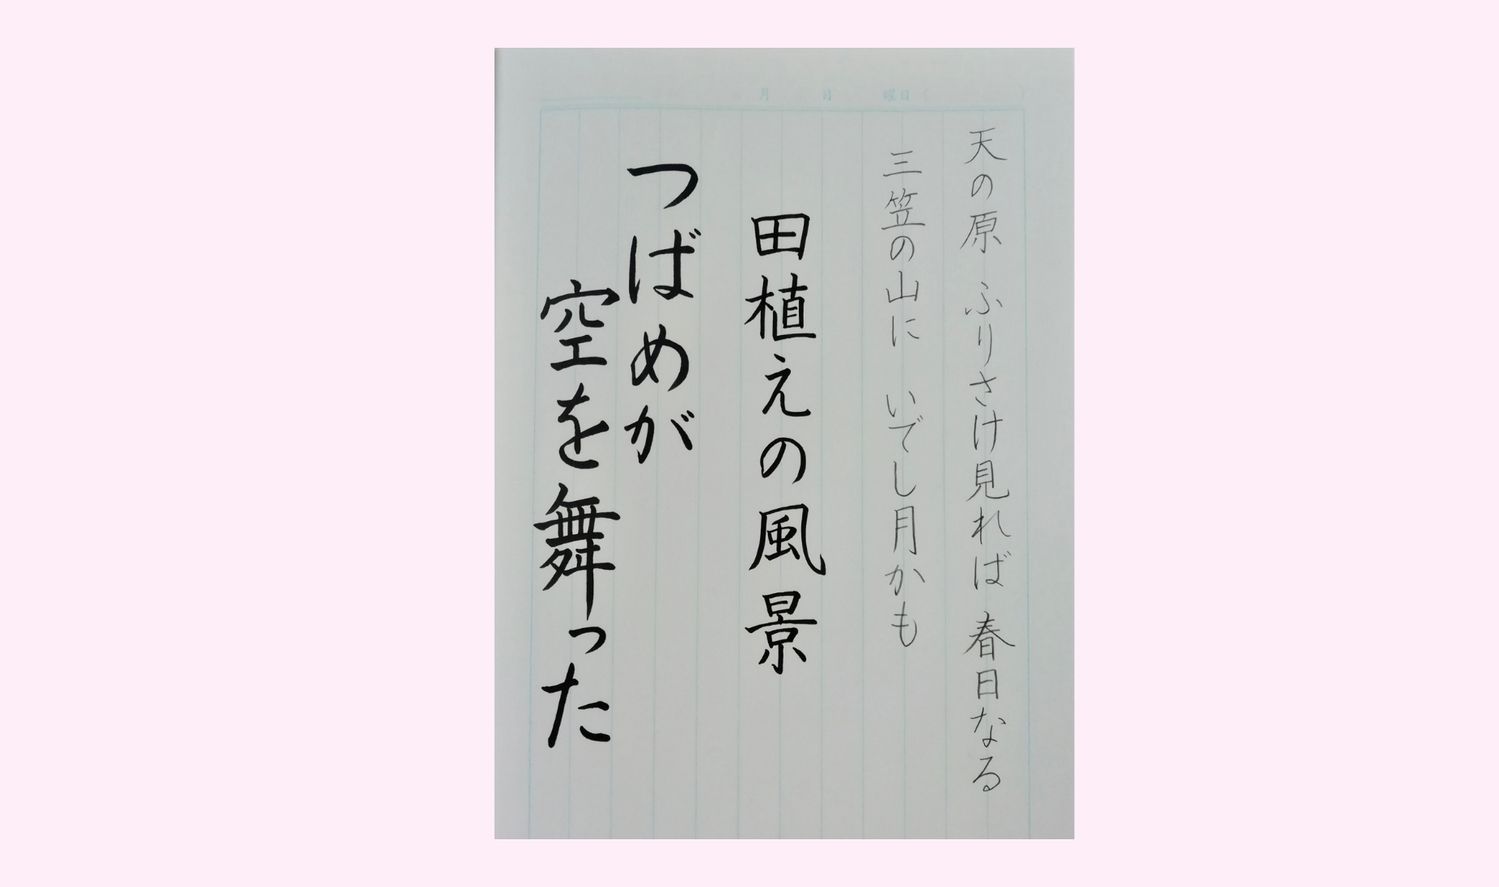 月 日 曜日（ ）
天の原 ふりさけ見れば 春日なる
三笠の山に いでし月かも
田植えの風景
つばめが
空を舞った